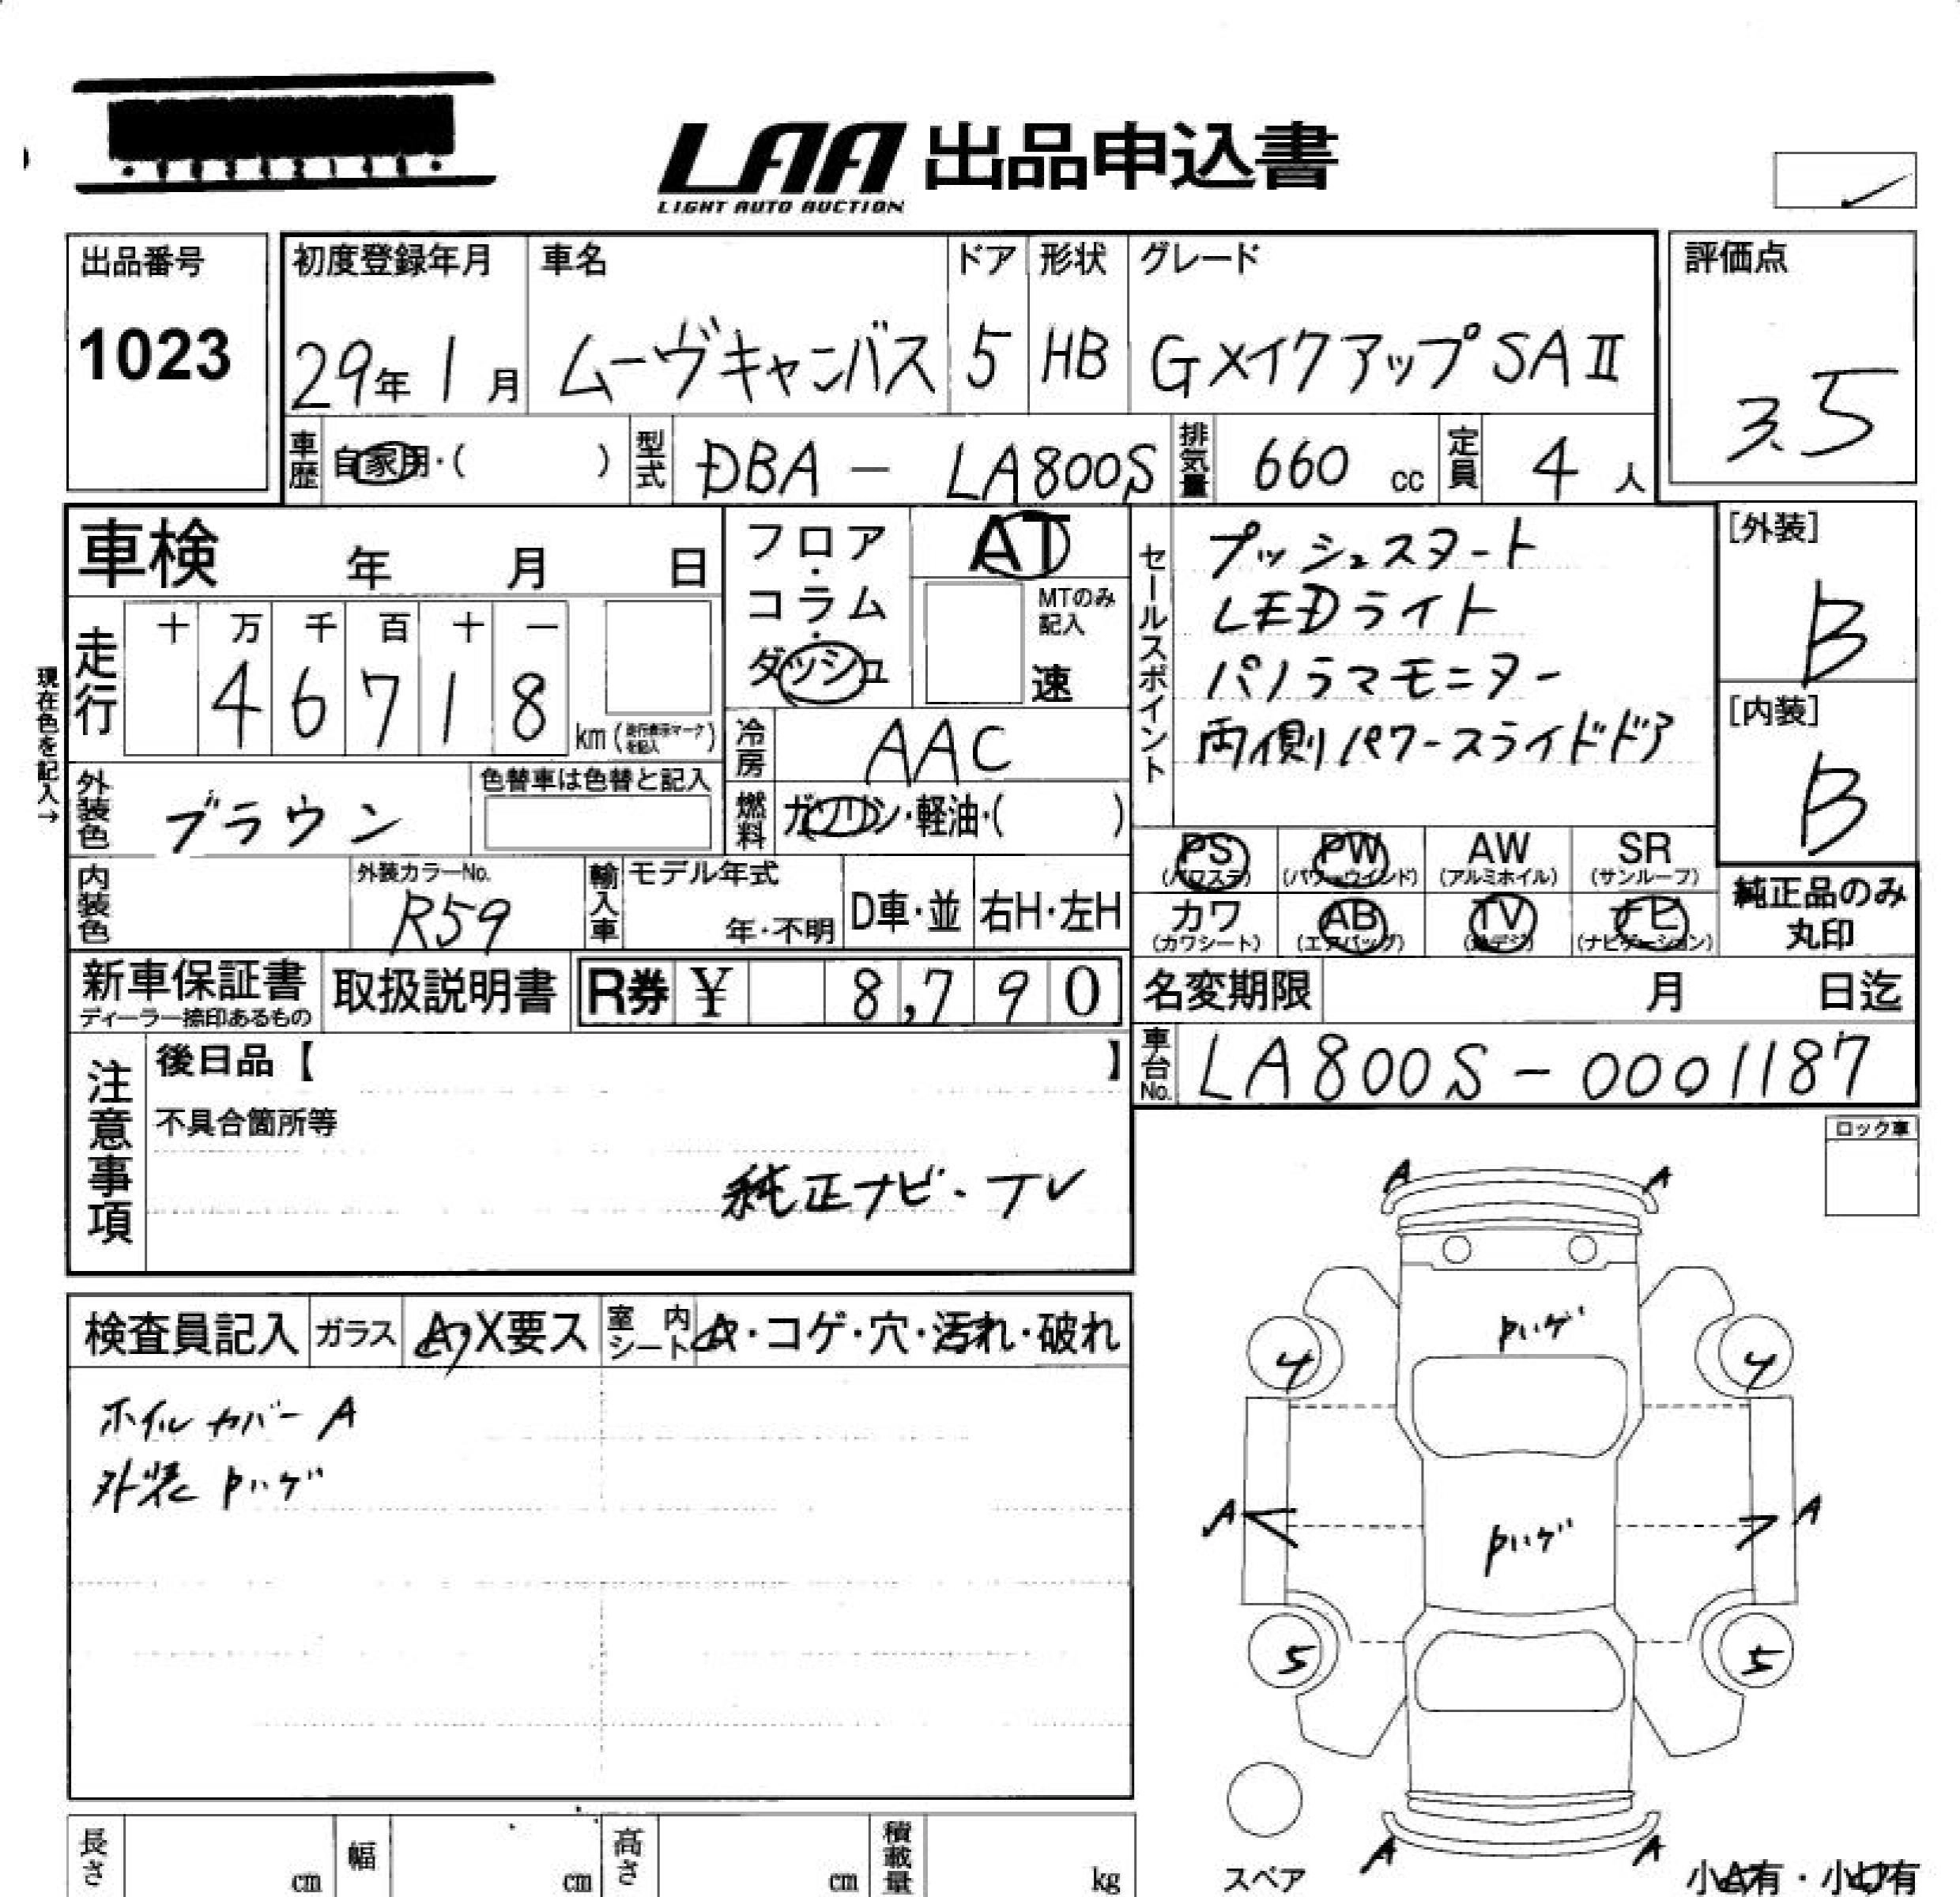 LAA 出品申込書
LIGHT AUTO AUCTION
出品番号
1023
初度登録年月
29年 1月
車名
ムーヴキャンバス
ドア
5
形状
HB
グレード
GメイクアップSAⅡ
評価点
3.5
車歴 自家用・( )
型式 DBA - LA800S
排気量 660 cc
定員 4 人
車検 年 月 日
走行
十 万 千 百 十 一
4 6 7 1 8
km(走行表示マークを記入)
現在色を記入→
外装色 ブラウン
色替車は色替と記入
内装色
外装カラーNo.
R59
フロア・コラム・ダッシュ
AT
MTのみ記入
速
冷房 AAC
燃料 ガソリン・軽油・( )
輸入車
モデル年式
年・不明
D車・並
右H・左H
セールスポイント
プッシュスタート
LEDライト
パノラマモニター
両側パワースライドドア
[外装]
B
[内装]
B
PS (パワステ)
PW (パワーウインド)
AW (アルミホイル)
SR (サンルーフ)
カワ (カワシート)
AB (エアバッグ)
TV (地デジ)
ナビ (ナビゲーション)
純正品のみ
丸印
新車保証書
ディーラー捺印あるもの
取扱説明書
R券 ¥ 8,790
名変期限 月 日迄
車台No. LA800S-0001187
注意事項
後日品【 】
不具合箇所等
純正ナビ・TV
ロック車
検査員記入
ガラス A・X要ス
室内シート A・コゲ・穴・汚れ・破れ
ホイルカバーA
外装トハゲ
A A
トハゲ
4 4
A A
トハゲ
5 5
A A
スペア
小A有・小U有
長さ cm
幅 cm
高さ cm
積載量 kg